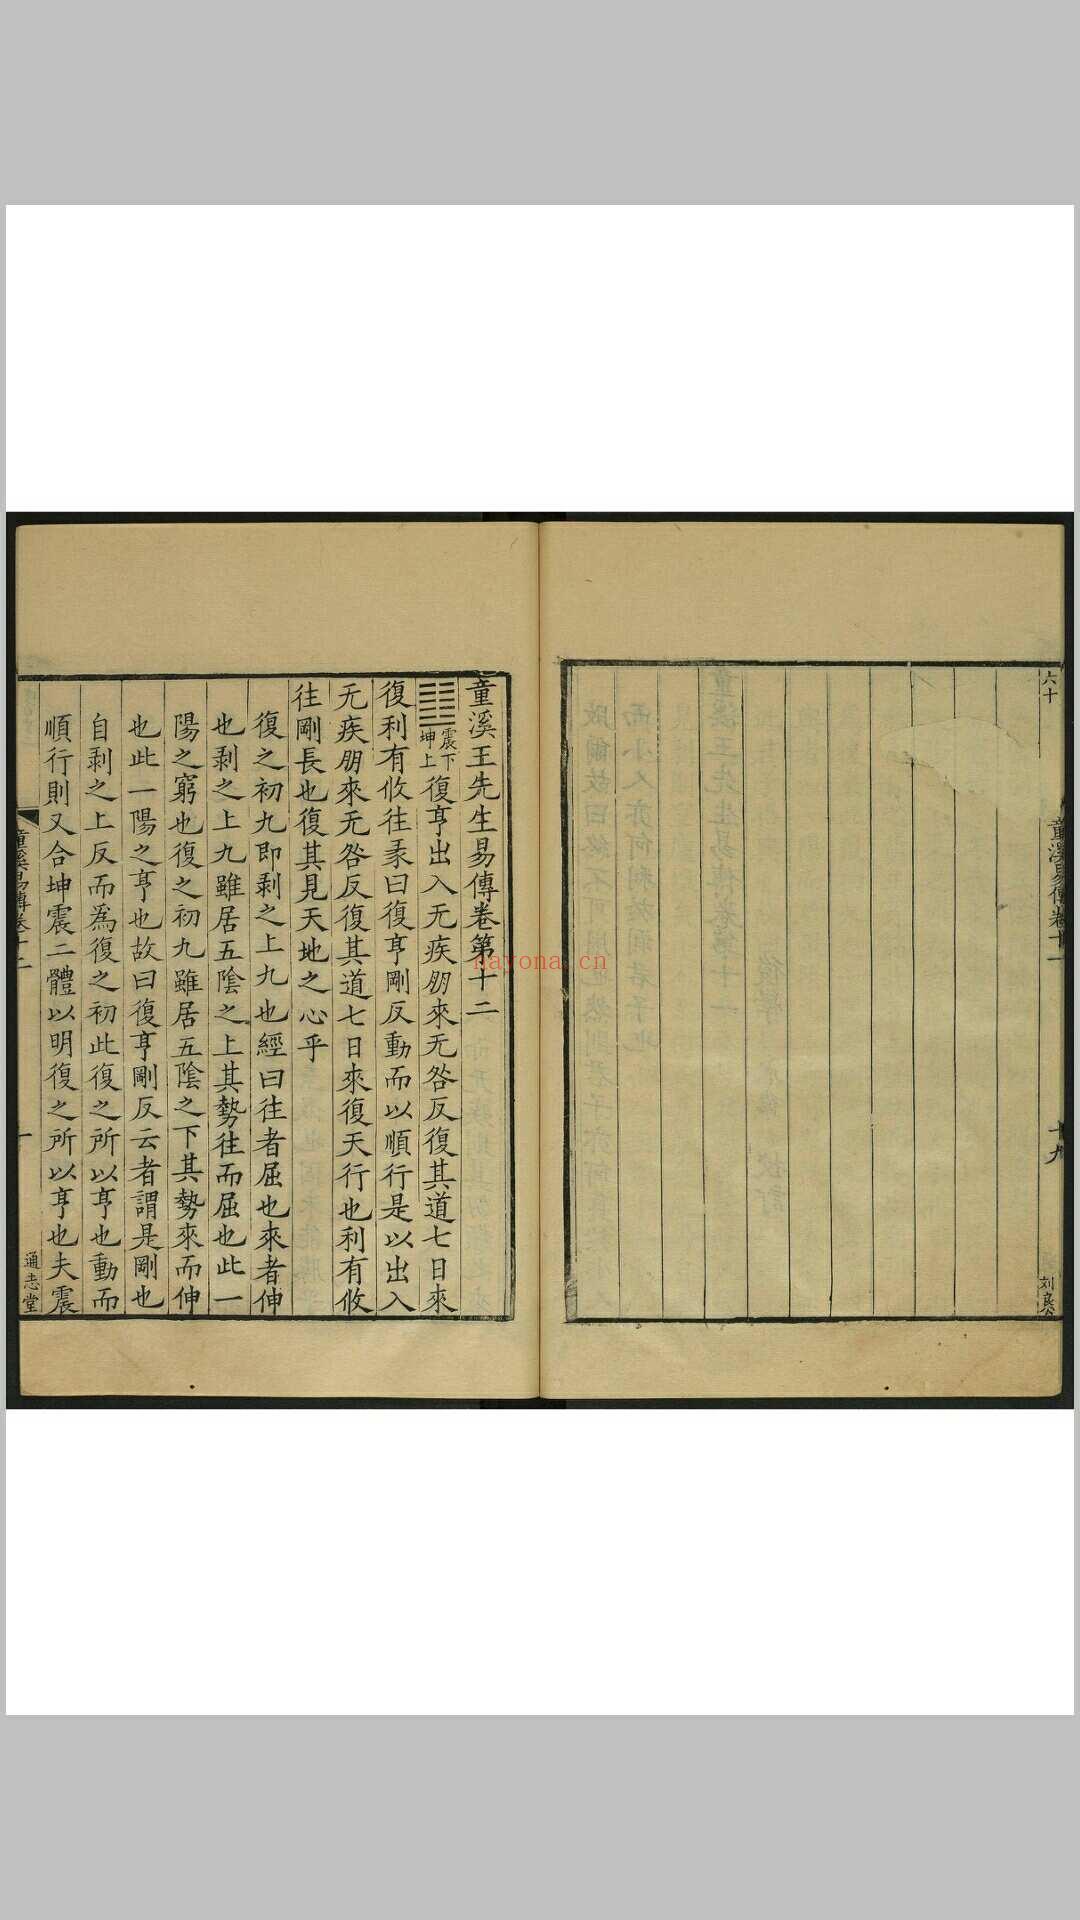 六十
童溪易傳卷十一
十九
刘良公
童溪王先生易傳卷第十二
震下
坤上
復亨出入无疾朋來无咎反復其道七日來
復利有攸往彖曰復亨剛反動而以順行是以出入
无疾朋來无咎反復其道七日來復天行也利有攸
往剛長也復其見天地之心乎
復之初九即剥之上九也經曰往者屈也來者伸
也剥之上九雖居五陰之上其勢往而屈也此一
陽之窮也復之初九雖居五陰之下其勢來而伸
也此一陽之亨也故曰復亨剛反云者謂是剛也
自剥之上反而為復之初此復之所以亨也動而
順行則又合坤震二體以明復之所以亨也夫震
童溪易傳卷十二
一
通志堂
nayona.cn